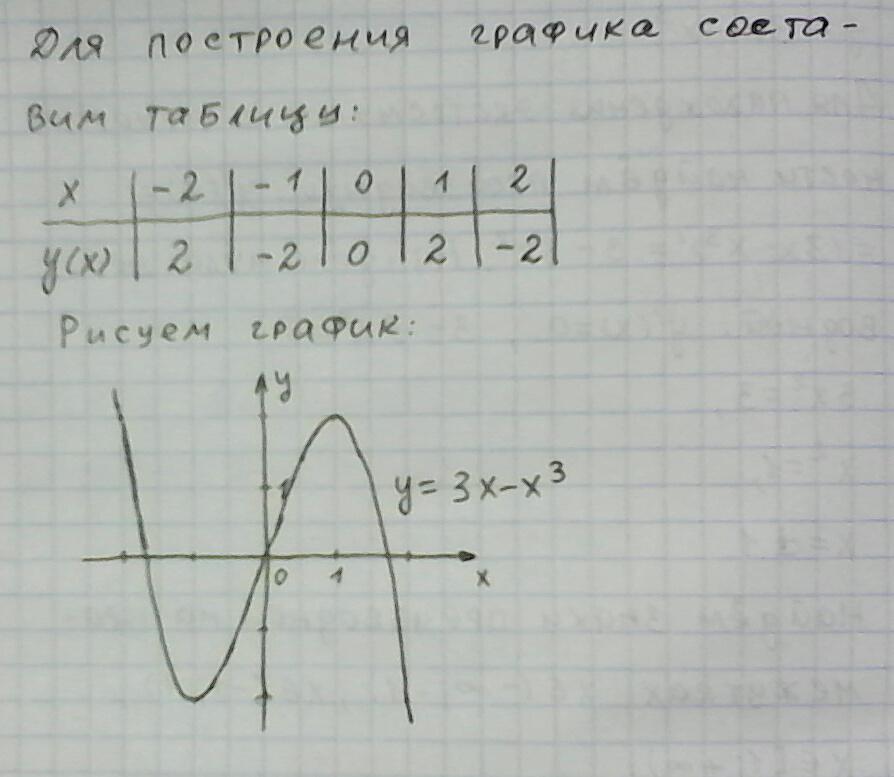 Для построения графика соста-
вим таблицу:
x | -2 | -1 | 0 | 1 | 2 |
y(x) | 2 | -2 | 0 | 2 | -2 |
Рисуем график:
y
1
y = 3x-x³
0 1 x